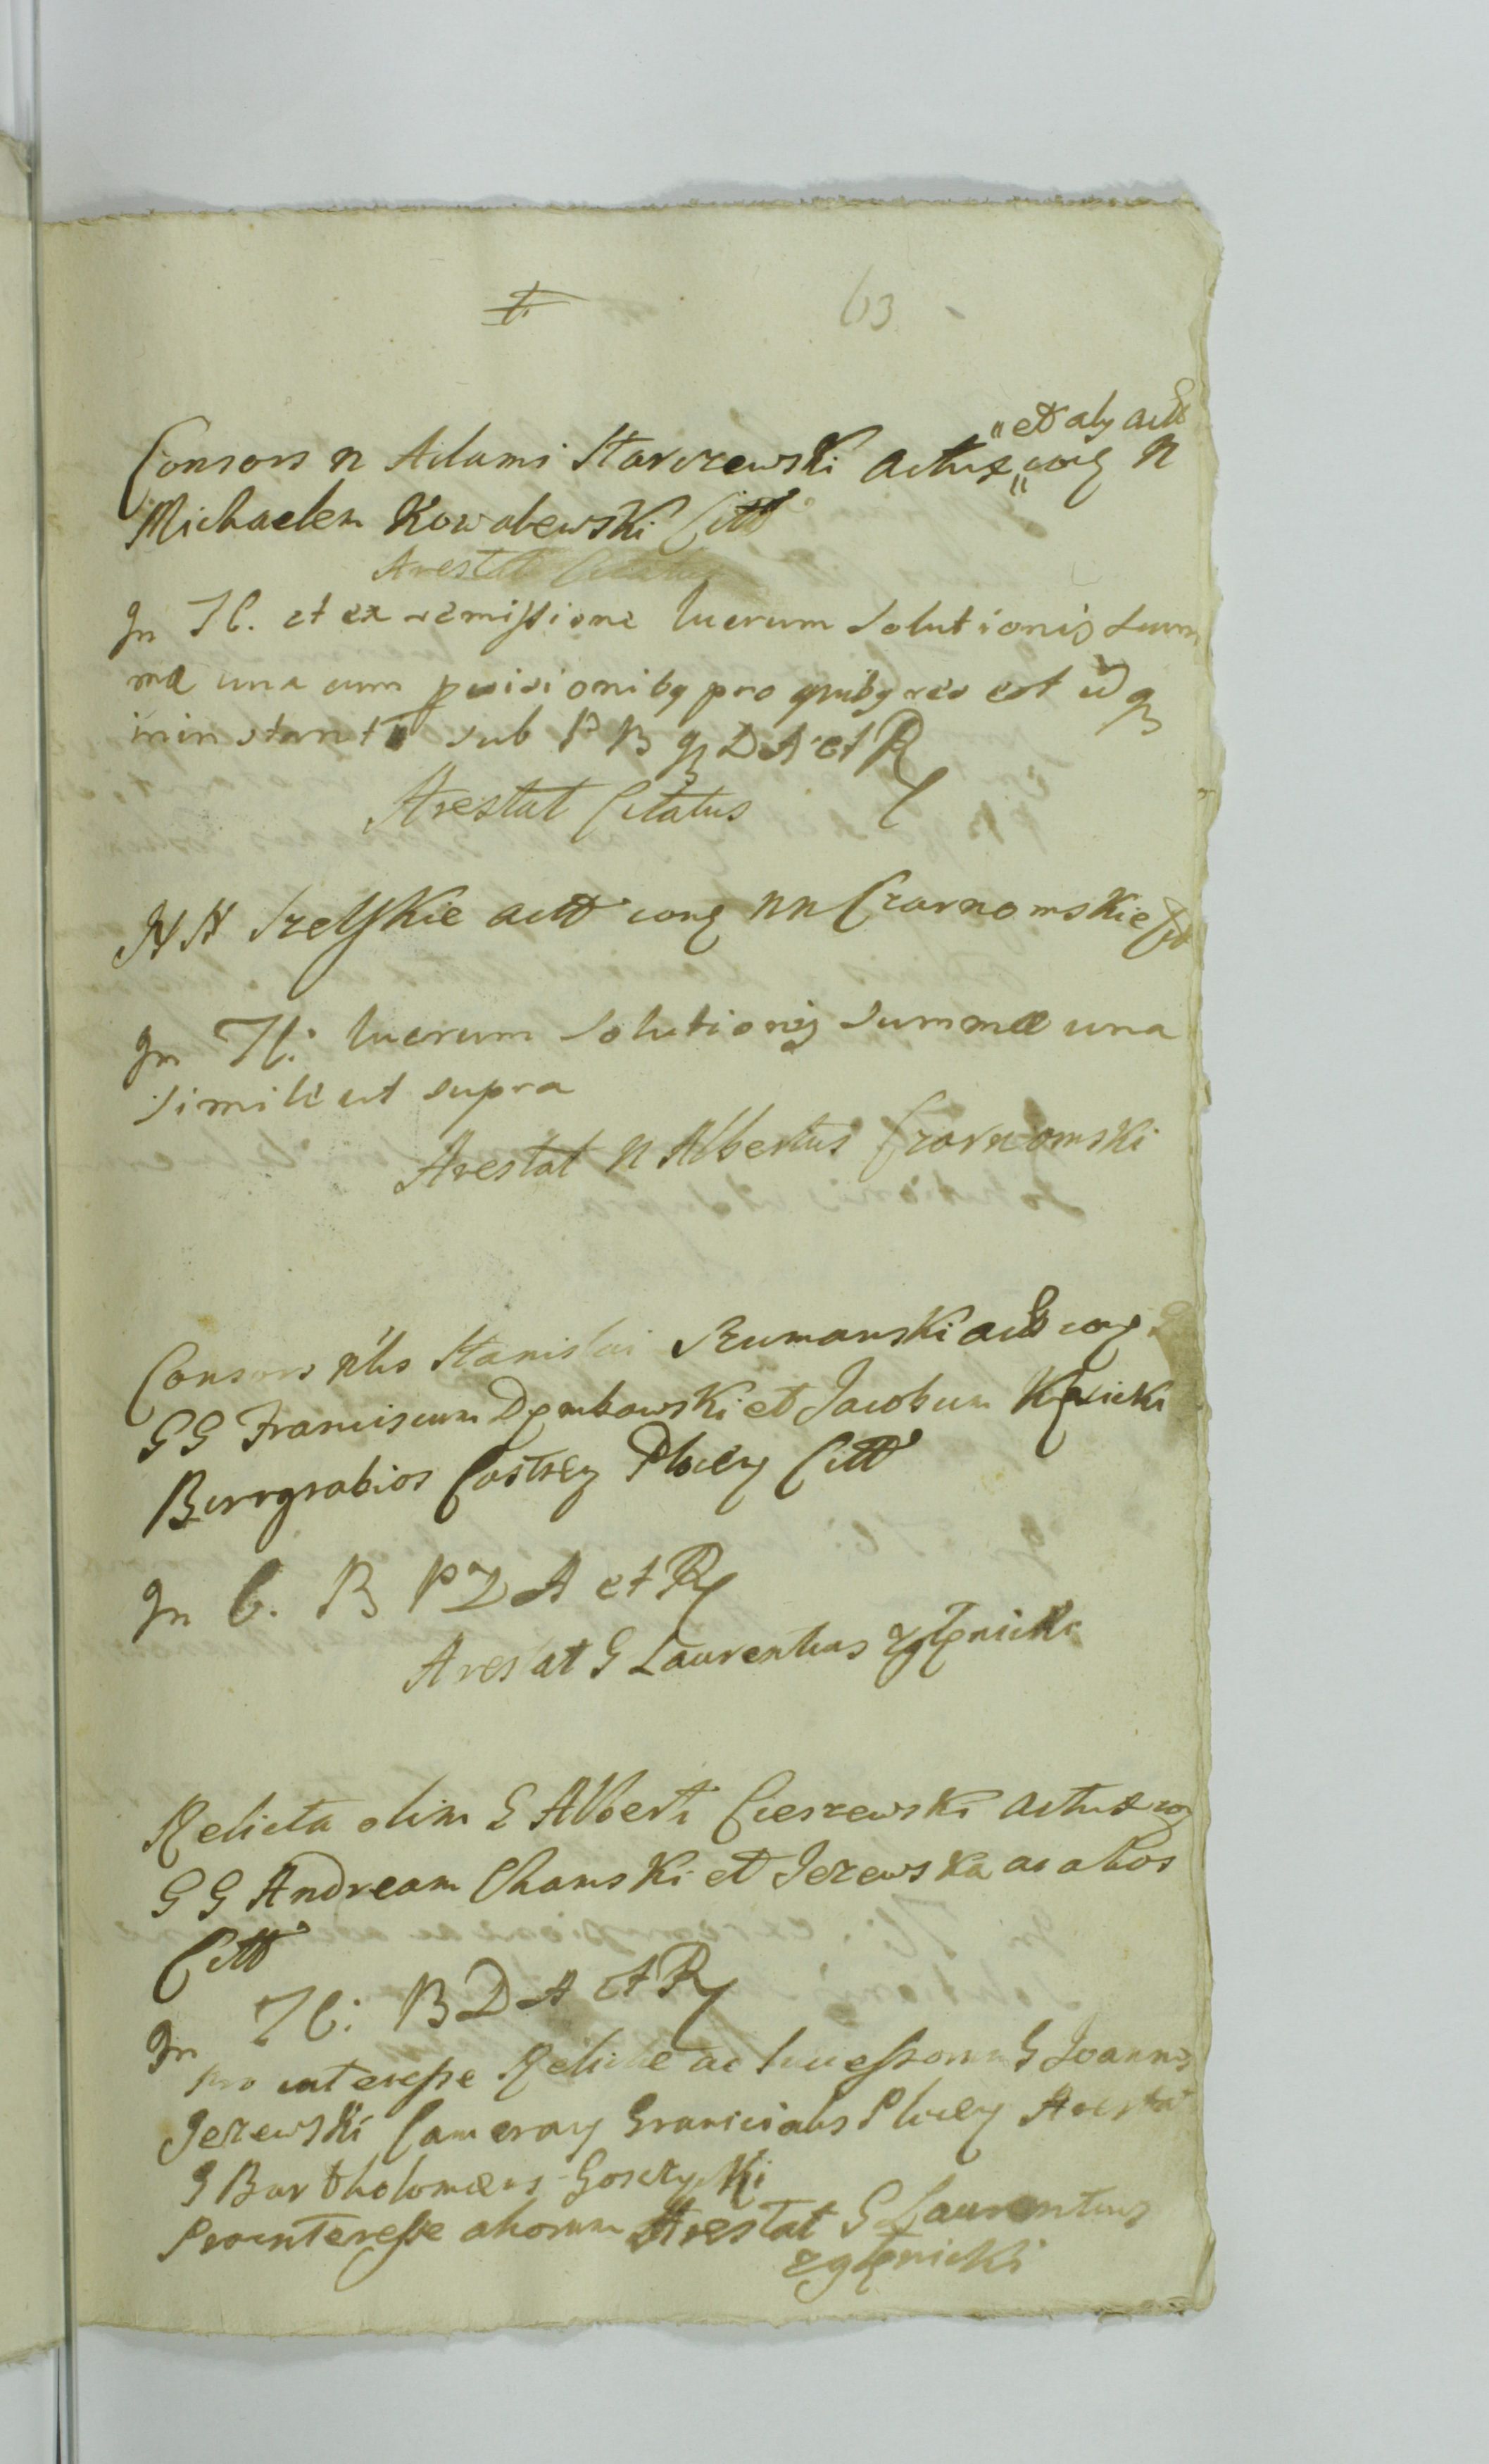 63
"et aly actt
Consors n Adami Starczewski actrix " cong n
Michaelem Kowalewski Citt
Arestat Citatus
In Tl. et ex remissione lucrum solutionis sum
mæ una cum provisionibg pro quibg res est
in instanti sub P B D A et R
Arestat Citatus
NN Szelskie actt cong nn Czarnomskie Citt
In Tl: lucrum solutionis summæ una
simile ut supra
Arestat n Albertus Czarnomski
Consors nlis Stanislai Rumanski actt cong
GG Franciscum Dembowski et Jacobum Kęsicki
Burgrabios Castren Plocen Citt
In C. B P D A et R
Arestat G Laurentius Zglenicki
Relicta olim G Alberti Cieszewski actrix cong
GG Andream Chamski et Jezewska ac alios
Citt
In Tl: B D A et R
pro interesse Relictæ ac Successorum G Joannis
Jezewski Camerary Granicialis Plocen Arestat
G Bartholomæus Goscicki
Pro interesse aliorum Arestat G Laurentius
Zglenicki